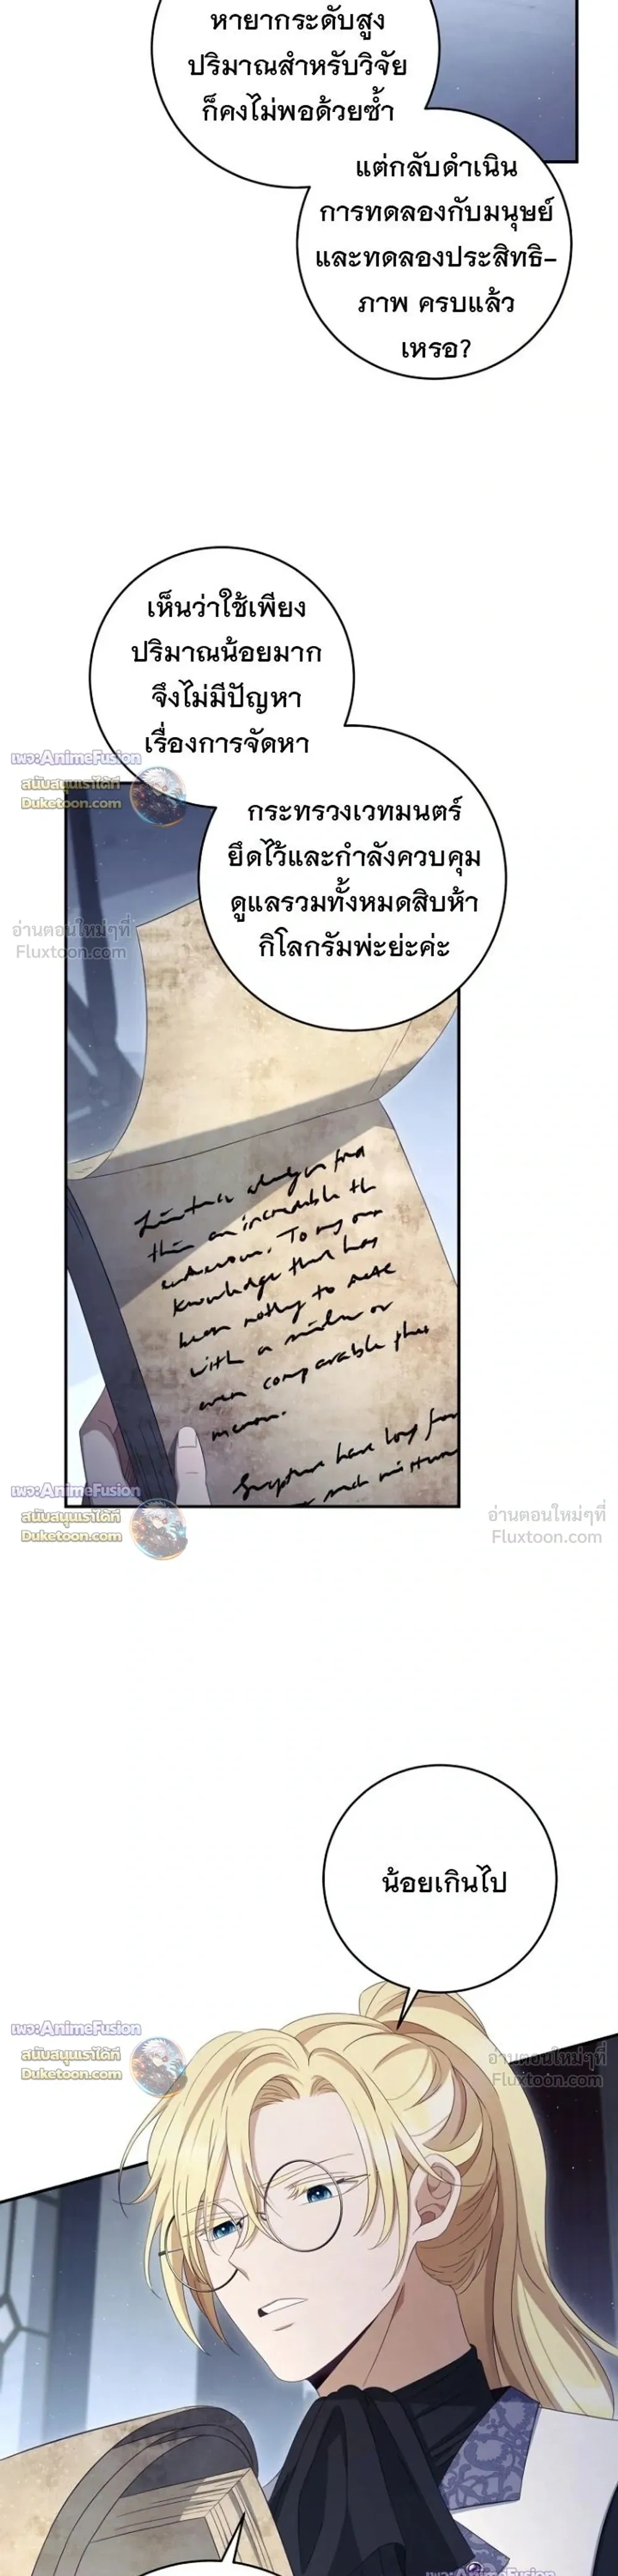 หายากระดับสูง
ปริมาณสำหรับวิจัย
ก็คงไม่พอด้วยซ้ำ
แต่กลับดำเนิน
การทดลองกับมนุษย์
และทดลองประสิทธิ-
ภาพ ครบแล้ว
เหรอ?
เห็นว่าใช้เพียง
ปริมาณน้อยมาก
จึงไม่มีปัญหา
เรื่องการจัดหา
เพจ:AnimeFusion
สนับสนุนเราได้ที่
Duketoon.com
กระทรวงเวทมนตร์
ยึดไว้และกำลังควบคุม
ดูแลรวมทั้งหมดสิบห้า
กิโลกรัมพ่ะย่ะค่ะ
อ่านตอนใหม่ๆที่
Fluxtoon.com
knowledge that has
been nothing to
with a similar or
even comparable
เพจ:AnimeFusion
สนับสนุนเราได้ที่
Duketoon.com
อ่านตอนใหม่ๆที่
Fluxtoon.com
น้อยเกินไป
เพจ:AnimeFusion
สนับสนุนเราได้ที่
Duketoon.com
อ่านตอนใหม่ๆที่
Fluxtoon.com
เพจ:AnimeFusion